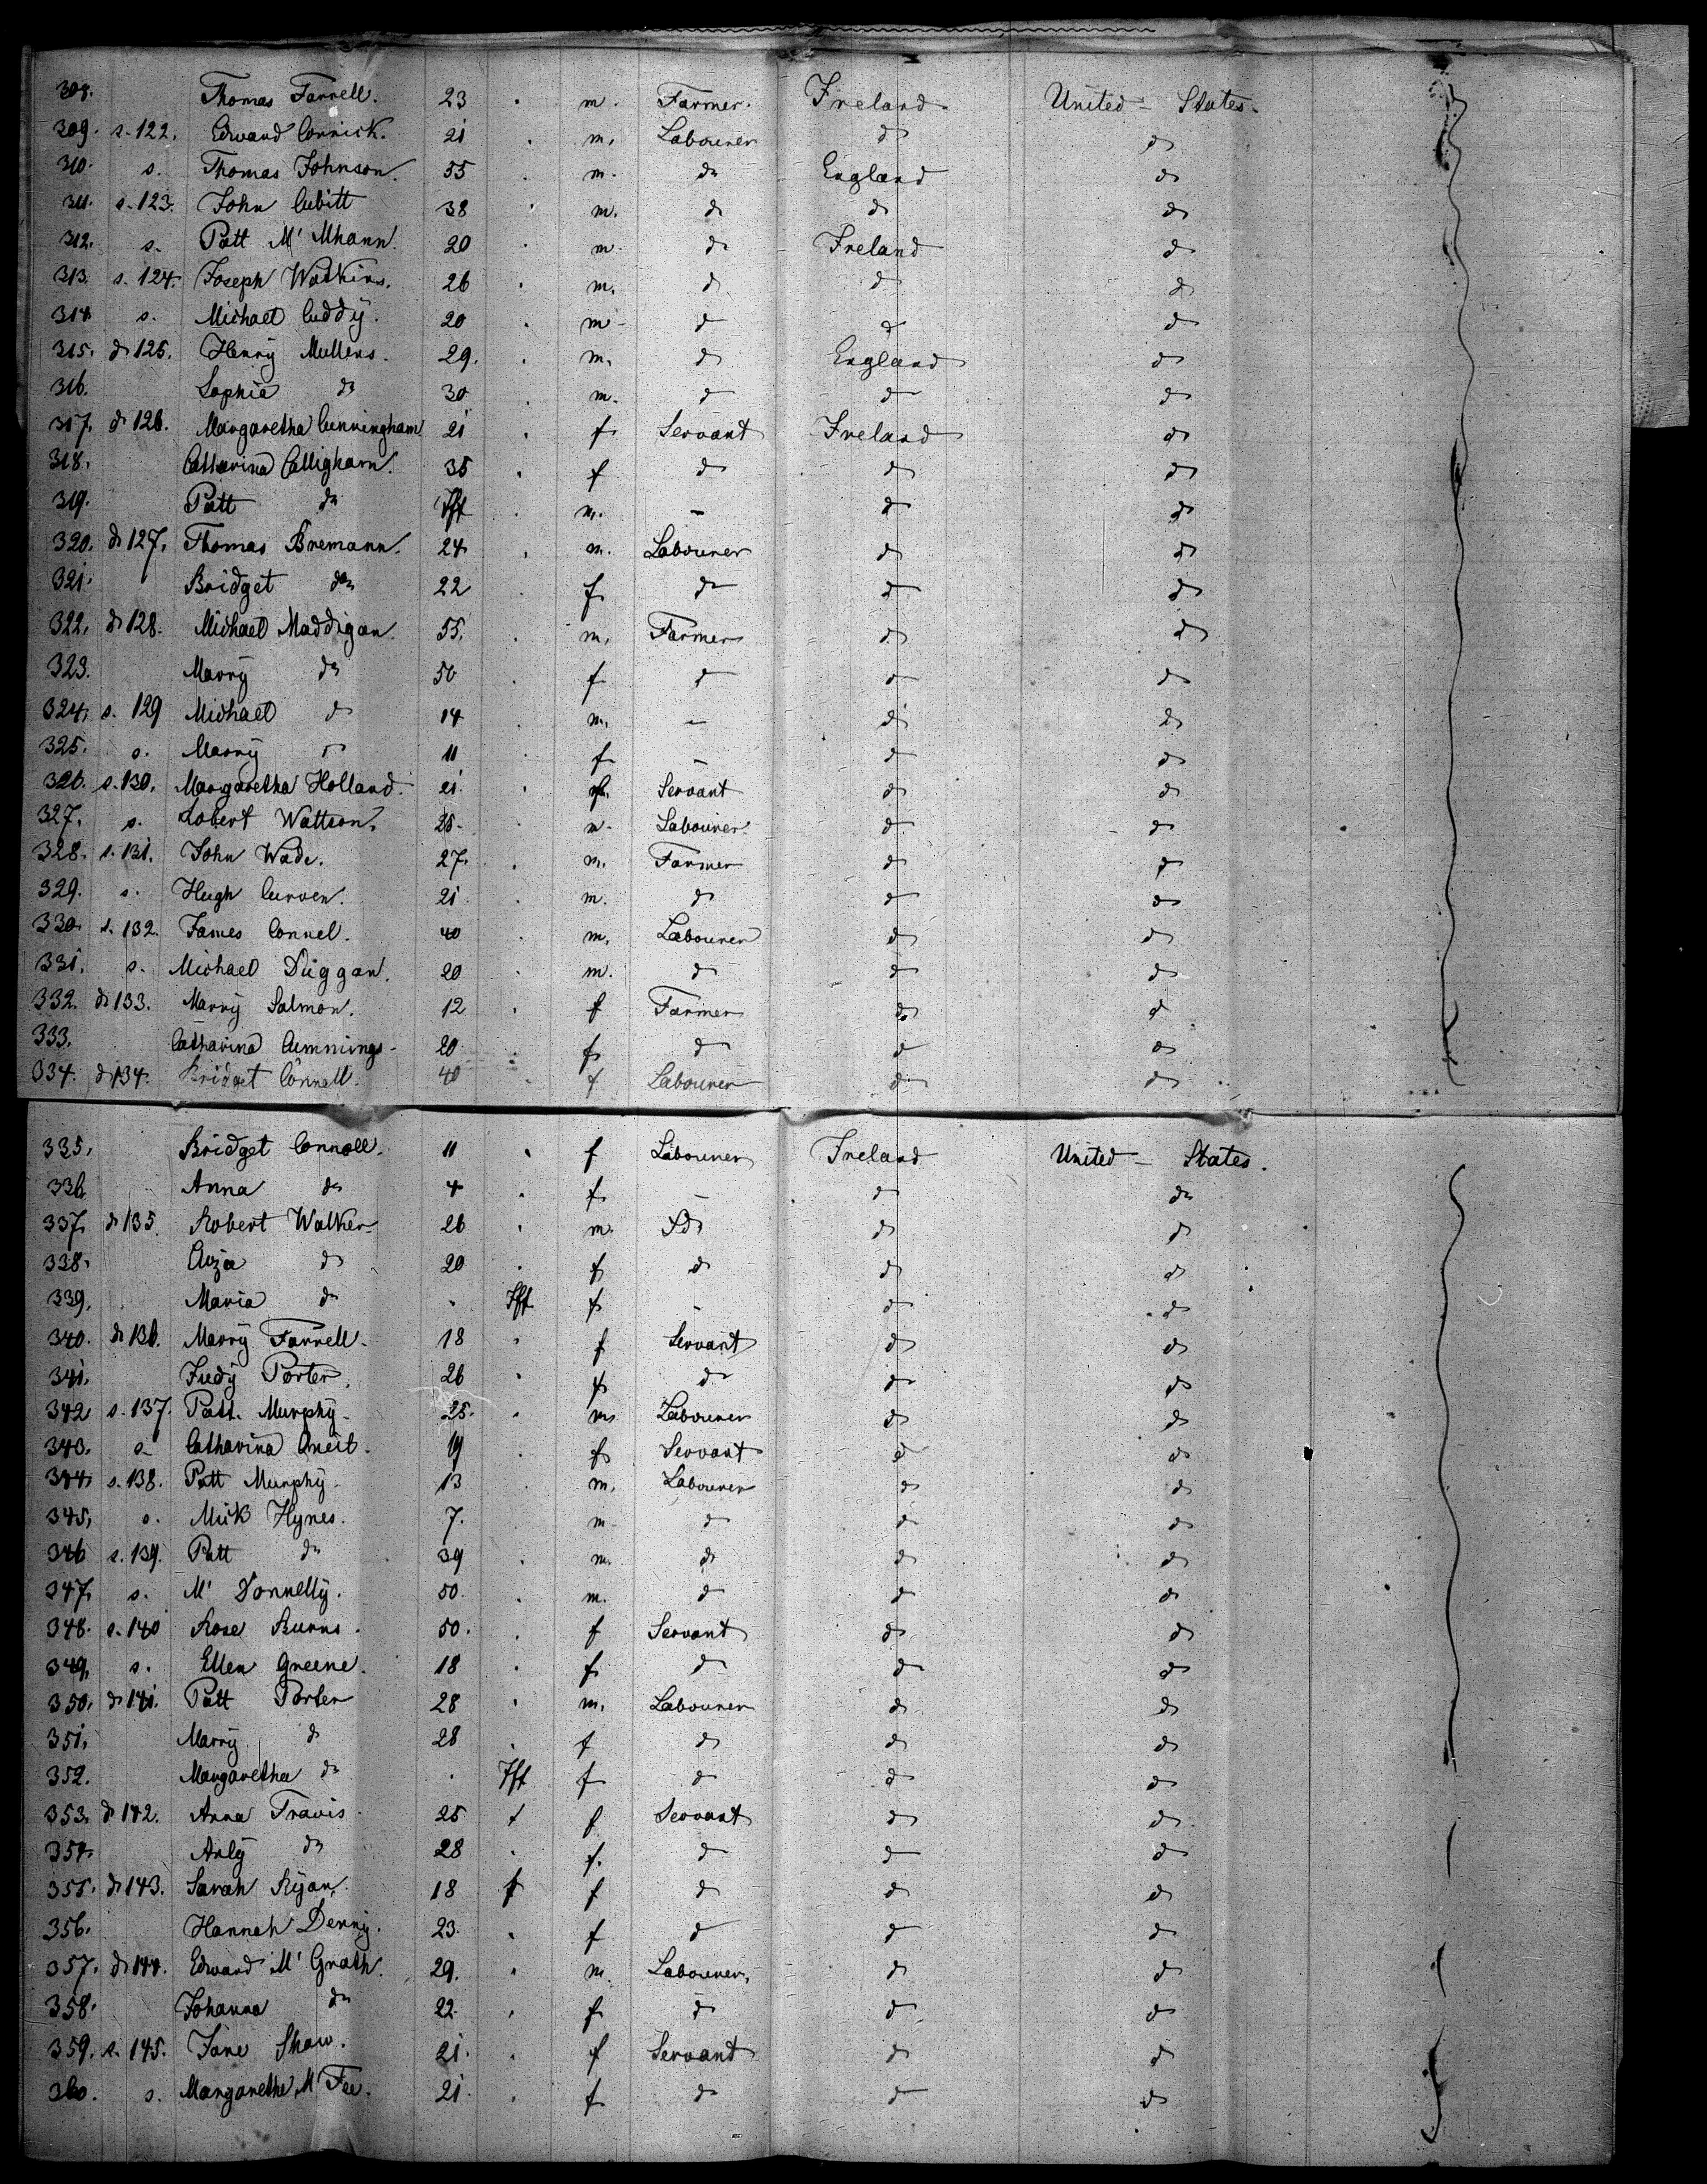 308. Thomas Farrell. 23 . m. Farmer. Ireland United - States.
309. s. 122. Edward Cornick. 21 . m. Labourer do do
310. s. Thomas Johnson. 55 . m. do England do
311. s. 123. John Cubitt 38 . m. do do do
312. s. Patt M' Mhann. 20 . m. do Ireland do
313. s. 124. Joseph Watkins. 26 . m. do do do
314 s. Michael Cuddy. 20 . m. do do do
315. d 125. Henry Mullens. 29. . m. do England do
316. Sophia do 30 . m. do do do
317. d 126. Margaretha Cunningham 21 . f Servant Ireland do
318. Catharina Calligharn. 35 . f do do do
319. Patt do Jft . m. - do do
320. d 127. Thomas Bremann. 24 . m. Labourer do do
321. Bridget do 22 . f do do do
322. d 128. Michael Maddigan. 55. . m. Farmer do do
323. Marry do 50 . f do do do
324. s. 129 Michael do 14 . m. - do do
325. s. Marry do 11 . f - do do
326. s. 130. Margaretha Holland. 21. . f. Servant do do
327. s. Robert Wattson. 25. . m. Labourer do do
328. s. 131. John Wade. 27. . m. Farmer do do
329. s. Hugh Curven. 21. . m. do do do
330. s. 132. James Connel. 40 . m. Labourer do do
331. s. Michael Duggan. 20 . m. do do do
332. d 133. Marry Salmon. 12 . f Farmer do do
333. Catharina Cummings 20 . f do do do
334. d 134. Bridget Connell. 40 . f Labourer do do
335. Bridget Connell. 11 . f Labourer Ireland United - States.
336 Anna do 4 . f - do do
337. d 135. Robert Walker 26 . m. do do do
338. do 20 . f do do do
339. Maria do . Jft f - do do
340. d 136. Marry Farrell. 18 . f Servant do do
341. Judy Porter. 26 . f do do do
342 s. 137. Patt. Murphy. 25. . m. Labourer do do
343. s. Catharina 19 . f Servant do do
344. s. 138. Patt Murphy. 13 . m. Labourer do do
345. s. Mick Hynes. 7. . m. do do do
346 s. 139. Patt do 39 . m. do do do
347. s. M' Donnelly. 50. . m. do do do
348. s. 140 Rose Burns. 50. . f Servant do do
349. s. Ellen Greene. 18 . f do do do
350. d 141. Patt Porter 28 . m. Labourer do do
351. Marry do 28 . f do do do
352. Margaretha do . Jft f do do do
353. d 142. Anna Travis. 25 f f Servant do do
354. Arly do 28 . f. do do do
355. d 143. Sarah Ryan. 18 f f do do do
356. Hannah Denny. 23. . f do do do
357. d 144. Edward M' Grath. 29. . m. Labourer. do do
358. Johanna do 22. . f do do do
359. s. 145. Jane Shaw. 21. . f Servant do do
360. s. Margaretha M' Fee. 21. . f do do do